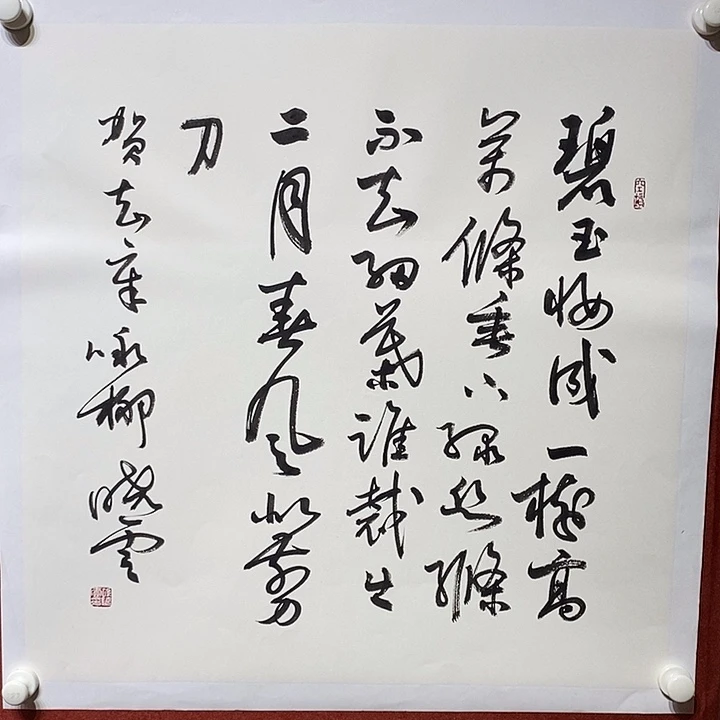 碧玉妝成一樹高
萬條垂下綠絲縧
不知細葉誰裁出
二月春風似剪
刀
賀知章咏柳曉雲